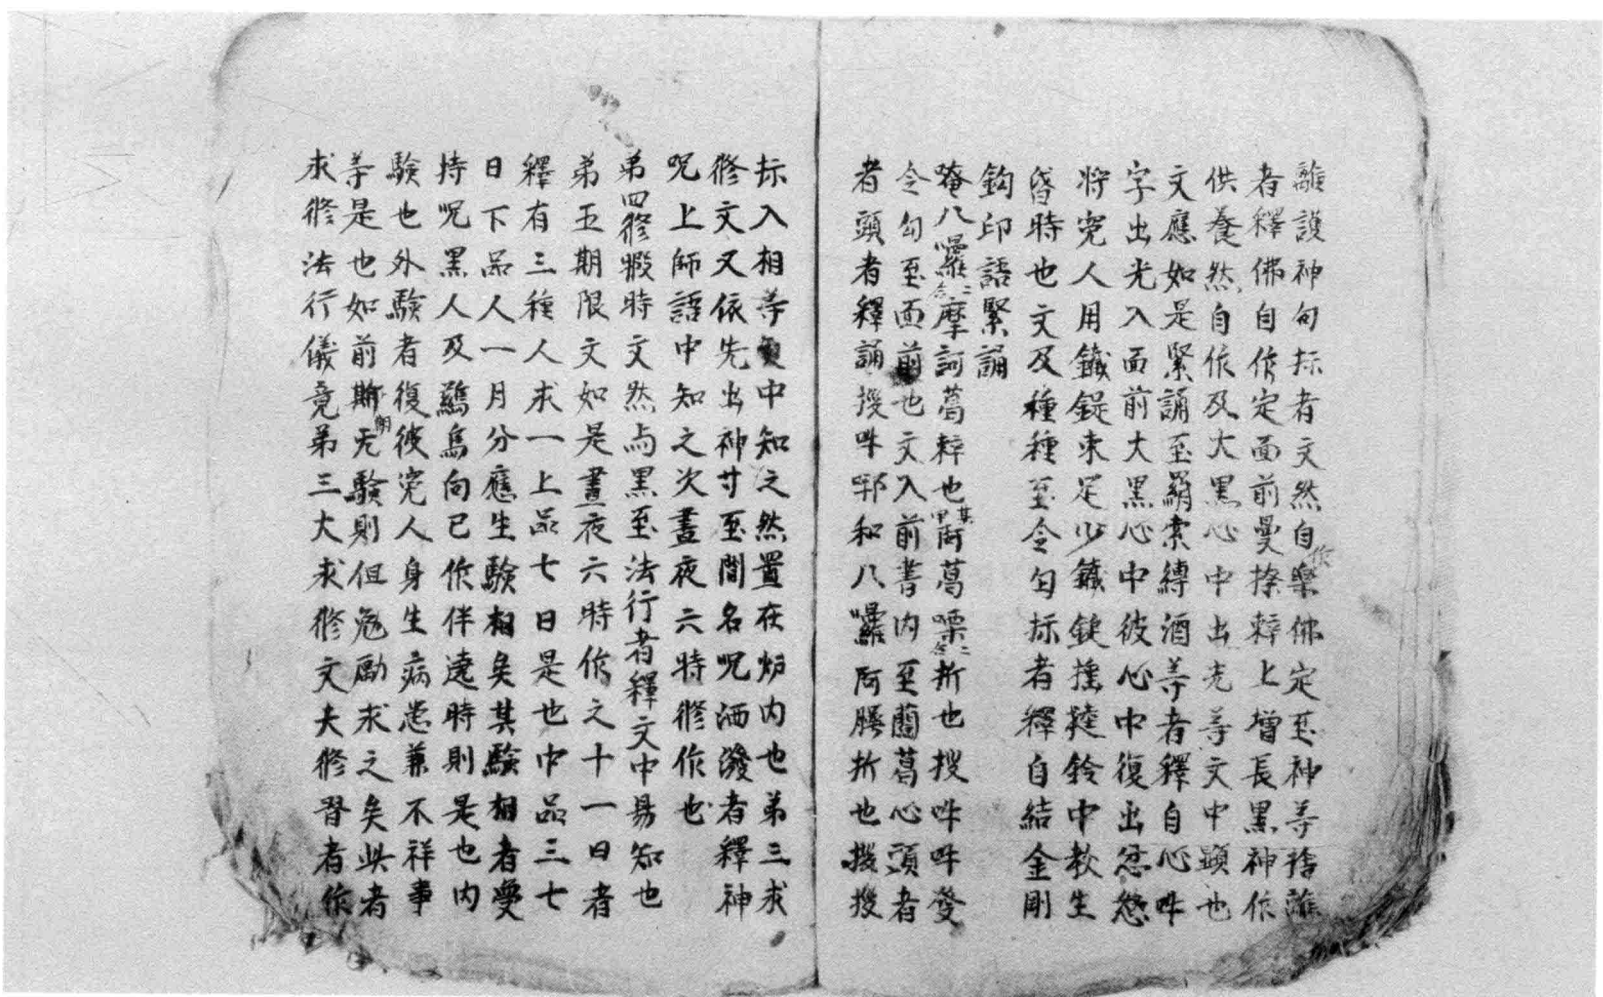 離護神句标者文然自樂佛定至神等捨離
者釋佛自作定面前曼捺粹上增長黑神作
供養然自作及大黑心中出光等文中顕也
文應如是緊誦至羂索縛酒等者釋自心吽
字出光入面前大黑心中彼心中復出忿怒
将寃人用鐵錠束足少鐵鎚揺鈴中教生
昏時也文及種種至令勾标者釋自結金剛
鈎印語緊誦
唵八囉二合摩訶葛粹也其甲阿葛嘌二合折也授吽吽發
令勾至面前也文入前書内至蘭葛心頭者
者頭者釋誦授吽啈和八囉阿膝折也授授
标入相等中知之然置在炉内也弟三求
修文又依先出神寸至間名呪洒潑者釋神
呪上師語中知之次晝夜六時修作也
弟四修㫰時文然与黑至法行者釋文中易知也
弟五期限文如是晝夜六時作之十一日者
釋有三種人求一上品七日是也中品三七
日下品人一月分應生驗相矣其驗相者夢
持呪黑人及鷄鳥向已作伴遶時則是也内
驗也外驗者復彼寃人身生病患兼不祥事
等是也如前期无驗則但勉勵求之矣此者
求修法行儀竟弟三大求修文夫修習者作